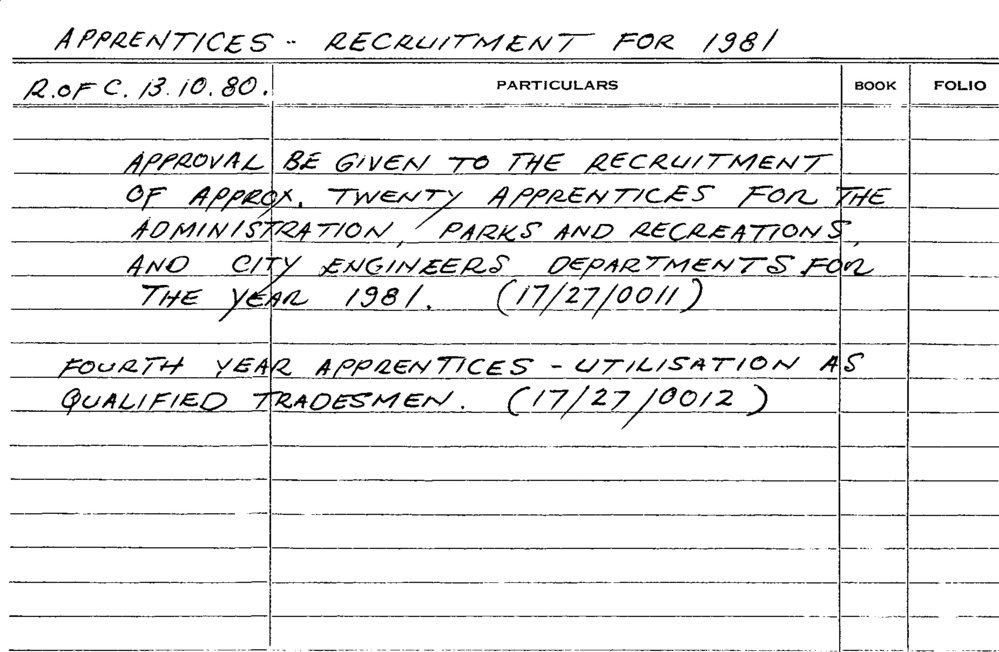 APPRENTICES - RECRUITMENT FOR 1981
R.OF C. 13.10.80. PARTICULARS BOOK FOLIO
APPROVAL BE GIVEN TO THE RECRUITMENT
OF APPROX. TWENTY APPRENTICES FOR THE
ADMINISTRATION, PARKS AND RECREATIONS,
AND CITY ENGINEERS DEPARTMENTS FOR
THE YEAR 1981. (17/27/0011)
FOURTH YEAR APPRENTICES - UTILISATION AS
QUALIFIED TRADESMEN. (17/27/0012)